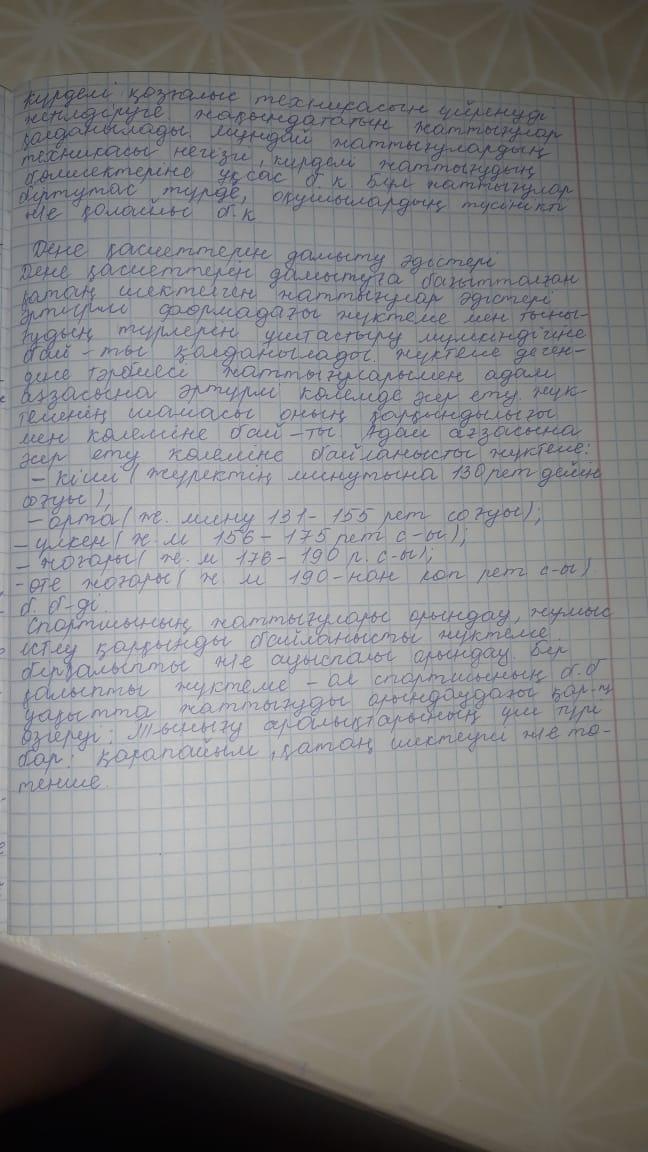 күрделі қозғалыс техникасын үйренуді
жеңілдіруге жақындататын жаттығулар
қолданылады мұндай жаттығулардың
техникасы негізгі, күрделі жаттығудың
бөлшектеріне ұқсас б.к Бұл жаттығулар
біртұтас түрде, оқушылардың түсінікті
және қолайлы б.к
Дене қасиеттерін дамыту әдістері
Дене қасиеттерін дамытуға бағытталған
қатаң шектелген жаттығулар әдістері
әртүрлі формадағы жүктеме мен тыны-
ғудың түрлерін ұштастыру мүмкіндігіне
бай-ты қолданылады. Жүктеме деген-
дене тәрбиесі жаттығуларымен адам
ағзасына әртүрлі көлемде әсер ету. Жүк-
теменің шамасы оның қарқындылығы
мен көлеміне бай-ты. Адам ағзасына
әсер ету көлеміне байланысты жүктеме:
- кіші (жүректің минутына 130 рет дейін
соғуы);
- орта (ж. мину 131-155 рет соғуы);
- үлкен (ж.м 156-175 рет с-ы);
- жоғары (ж.м 176-190 р. с-ы);
- өте жоғары (ж.м 190-нан көп рет с-ы)
б. б-ді.
Спортшының жаттығулары орындау, жұмыс
істеу қарқынды байланысты жүктеме
бірқалыпты және ауыспалы орындау. Бір
қалыпты жүктеме - ол спортшының б.б
уақытта жаттығуды орындаудағы қар-ң
өзгеруі. Тынығу аралықтарының үш түрі
бар: қарапайым, қатаң шектеулі және тө-
тенше.